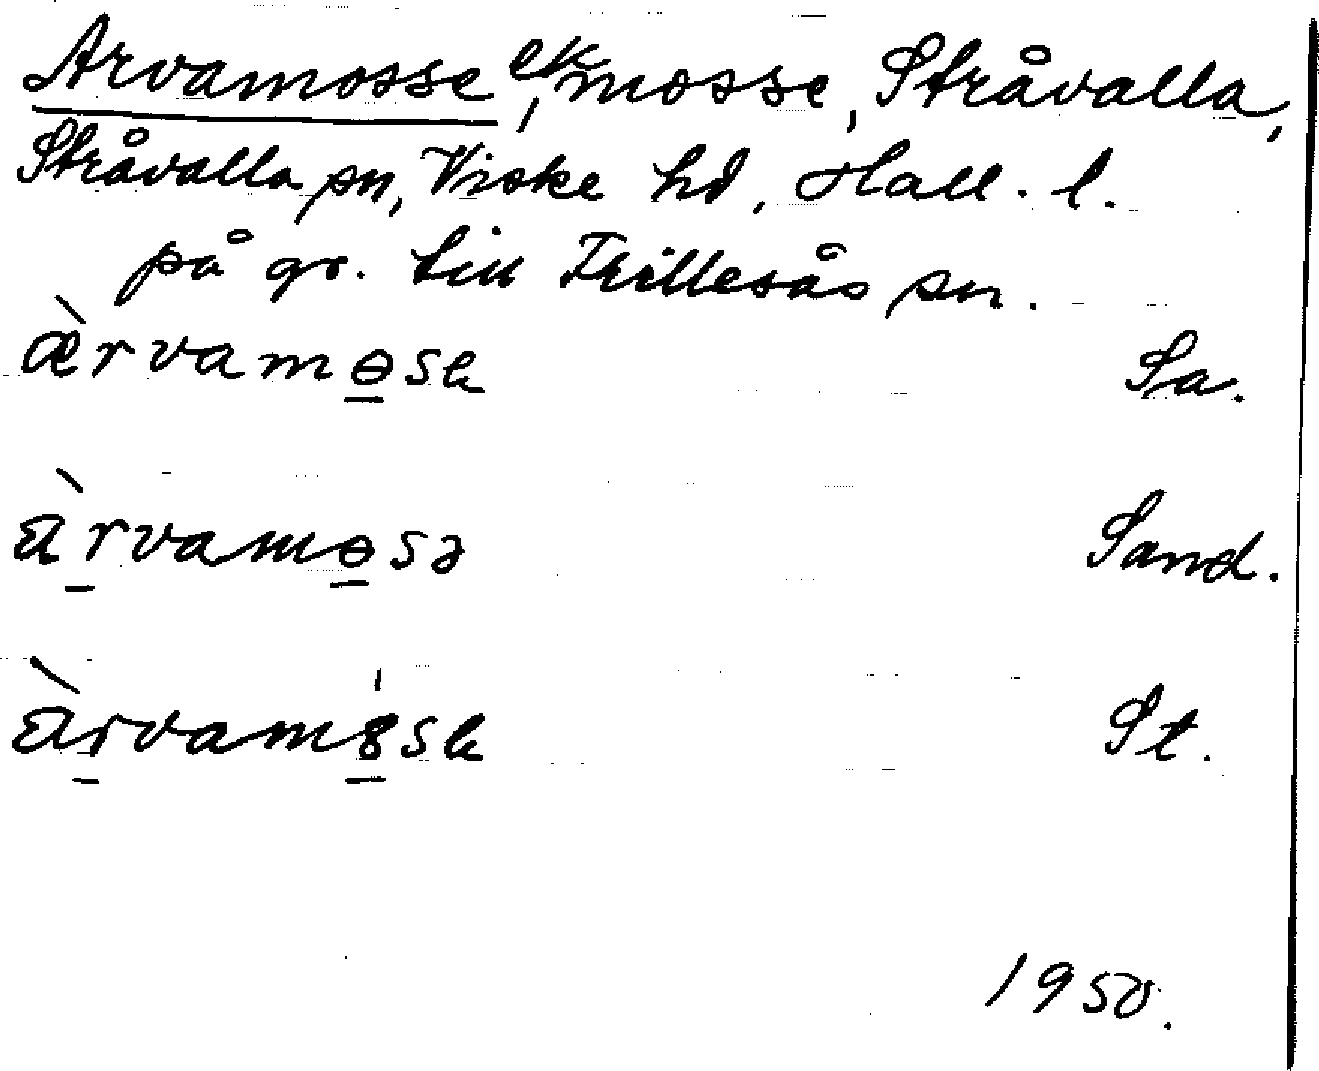 Arvamosse ek, mosse, Stråvalla,
Stråvalla sn, Viske hd, Hall. l.
på gr. till Frillesås sn.
æ̀rvamɵ̲sə Sa.
àr̲vamɵ̲sə Sand.
àr̲vamɵ̲sə St.
1950.